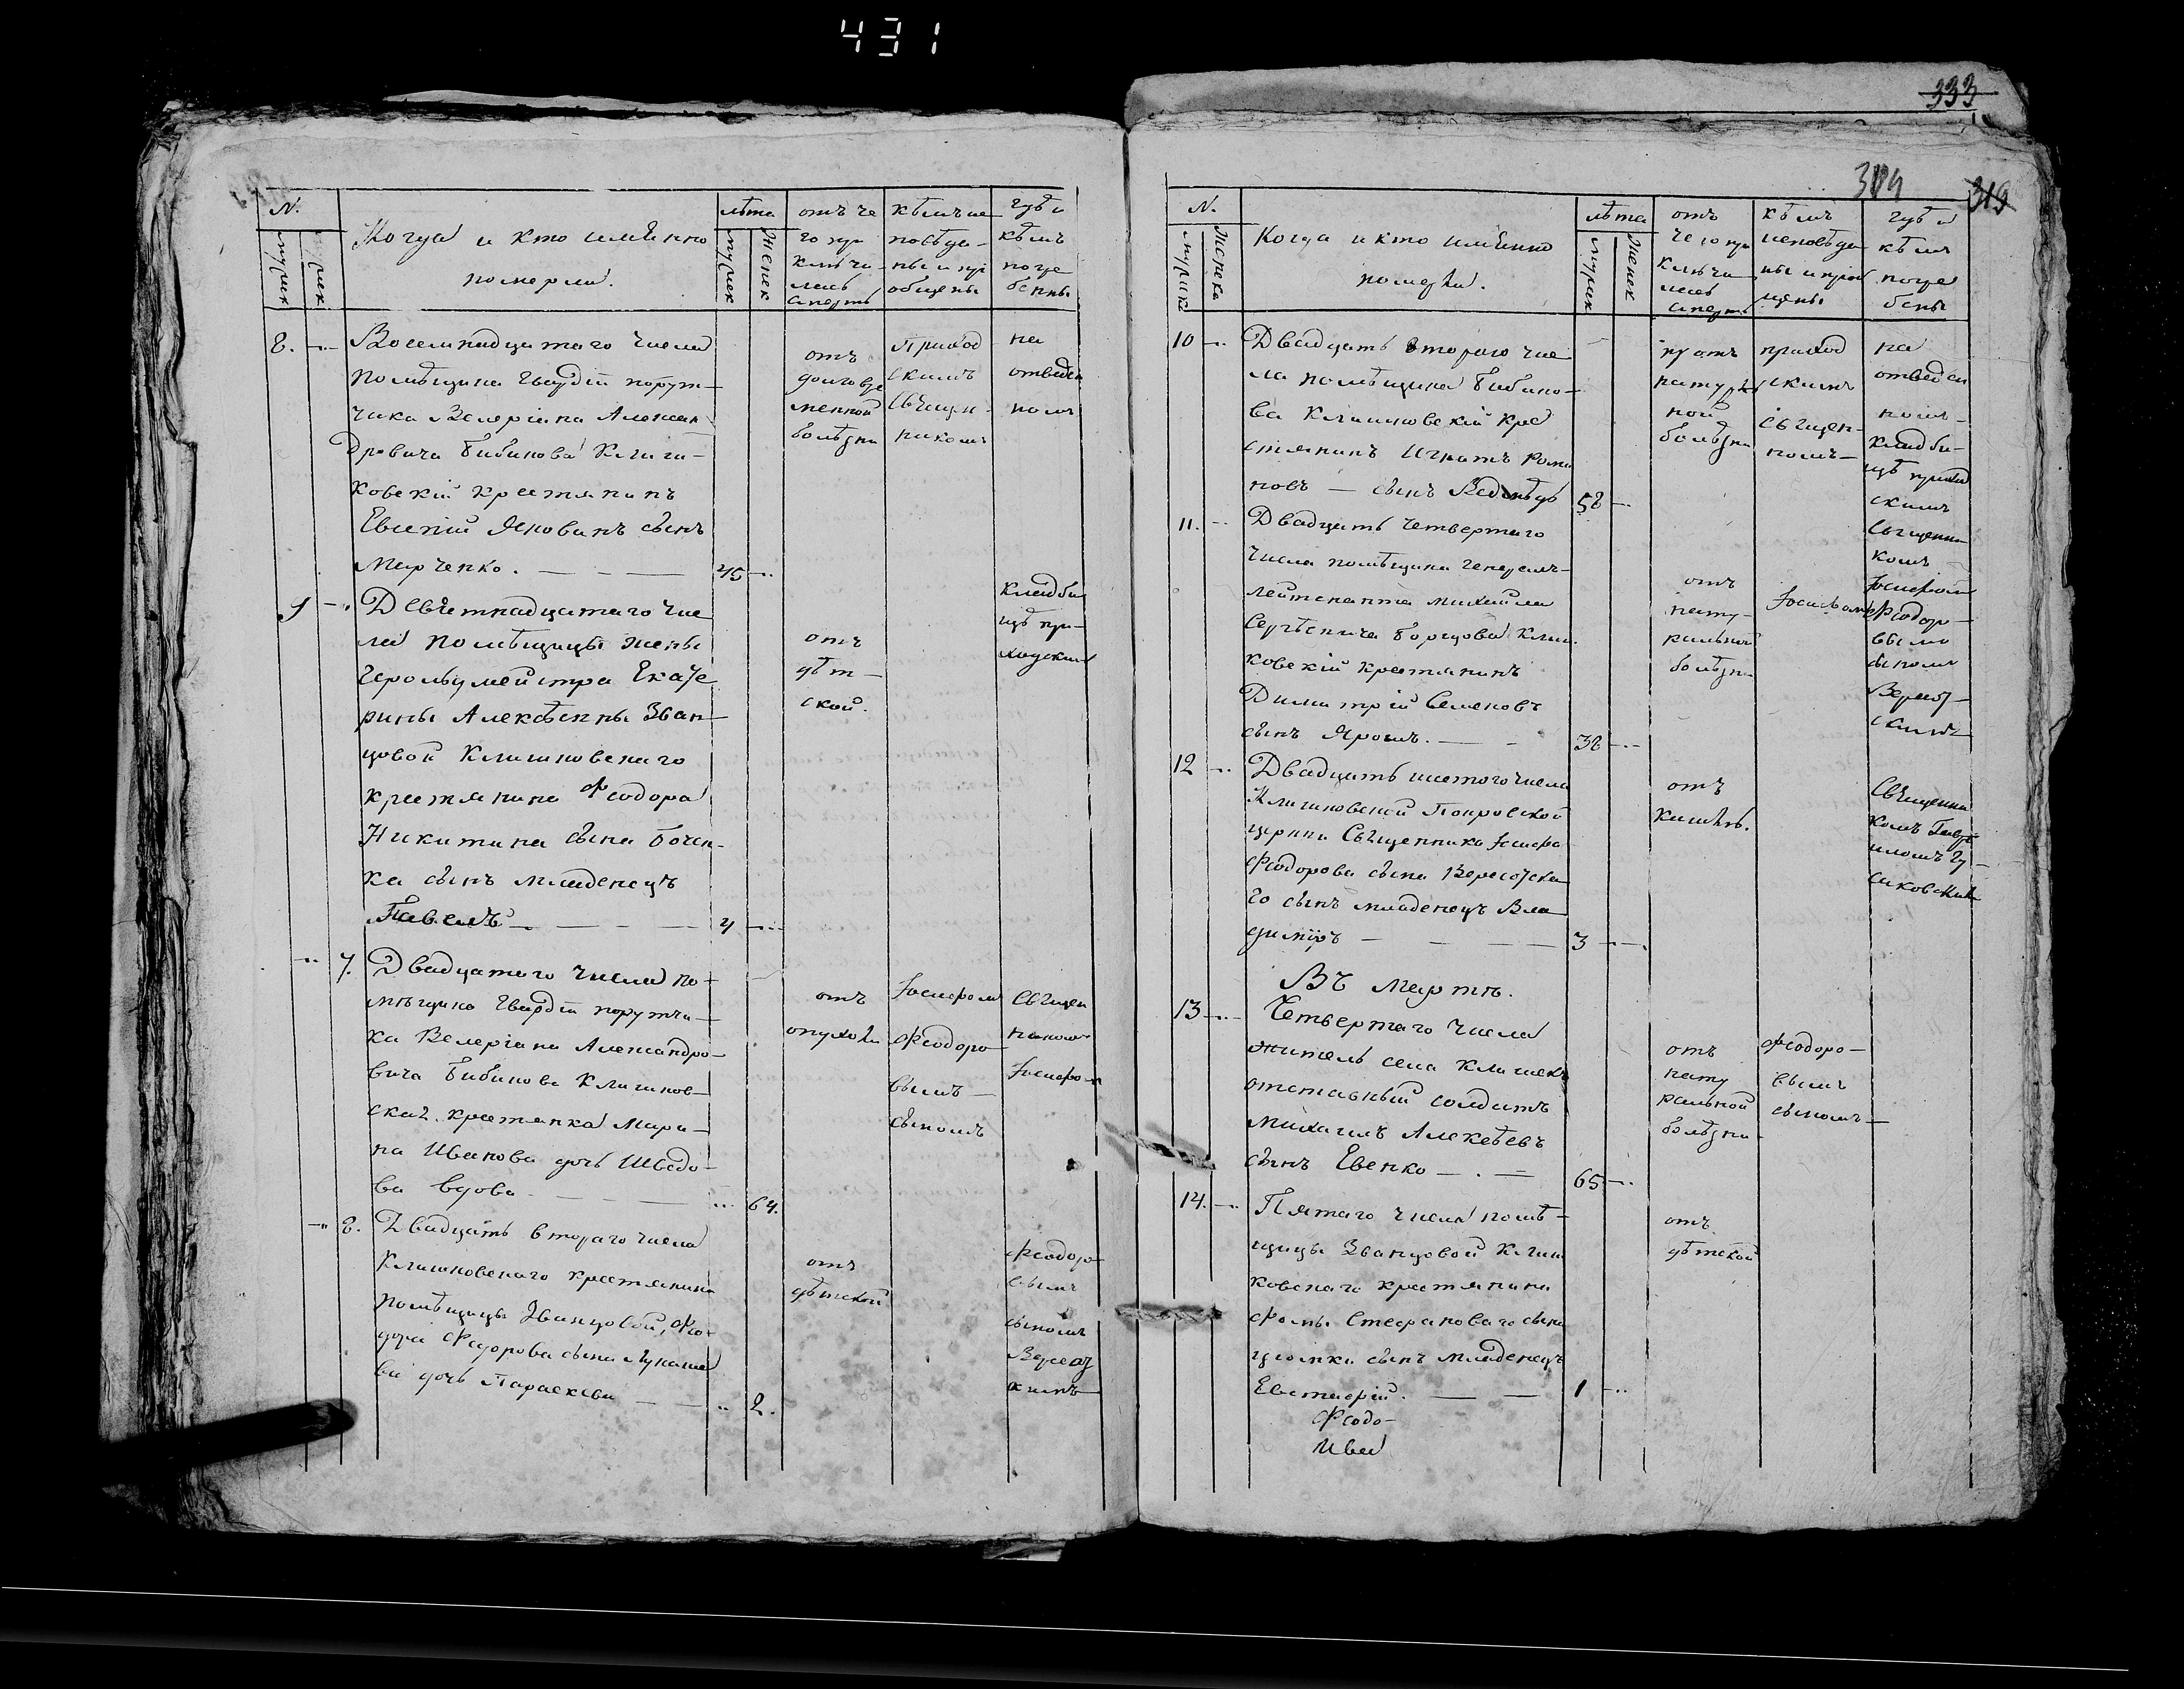 431
333
304
319
N.
мужск
женск
Когда и кто имѣнно
померли.
лѣта
мужск
женск
отъ че
го при
ключи
лась
смерть
кѣмъ ис
повѣда-
ны и прі
общены
гдѣ и
кѣмъ
погре
бенны
8.
Восемнадцатаго числа
помѣщика гвардіи порут-
чика Велеріана Алексан
дровича Бибикова Клиши-
ковскій крестянинъ
Евменій Яковинъ сынъ
Марченко.
45
отъ
долговре
менной
болѣзни
Приход
скимъ
Священ-
никомъ
на
отведен
номъ
9
Девятнадцатаго чис
ла помѣщицы жены
Герольдмейстра Екате
рины Алексѣевны Зван-
цовой Клишковскаго
крестянина Феодора
Никитина сына Бочен-
ка сынъ младенецъ
Павелъ
4
отъ
дѣт-
ской.
кладби
щѣ при-
ходским
7.
Двадцатаго числа по-
мѣщика Гвардіи порутчи-
ка Велеріана Александро-
вича Бибикова Клишков-
ская крестянка Мари-
на Иванова дочь Шведо-
ва вдова
64.
отъ
опухоли
Іосифом
Феодоро
вымъ
сыномъ
Священ
никомъ
Іосифом
8.
Двадцать втораго числа
Клишковскаго крестянина
помѣщицы Званцовой, Фео-
дора Федорова сына Лукаше
ва дочь Параскева
2.
отъ
дѣтской
Феодоро
вымъ
сыномъ
Верест
скимъ
N.
мужска
женска
Когда и кто имѣнно
померли.
лѣта
мужск
женск
отъ
чего при
ключи
лась
смерть
кѣмъ
исповѣда
ны и приоб
щены
гдѣ и
кѣмъ
погре
бены
10
Двадцать второго чис
ла помѣщика Бибико-
ва Клишковскій кре
стянинъ Игнатъ Рома
новъ — сынъ
58
отъ
натураль
ной
болѣзни
приход
скимъ
священ-
комъ
на
отведен
номъ-
кладби-
щѣ приход
скимъ
Священни
комъ
Іосифом
Феодоро-
вымъ
сыномъ
Верест-
скимъ
11.
Двадцать четвертаго
числа помѣщика генералъ-
лейтенанта Михаила
Сергѣевича Борщова Клиш
ковскій крестянинъ
Димитрій Семеновъ
сынъ Ярошъ.
38
отъ
нату-
ральной
болѣзни
Іосифомъ
12
Двадцать шестого числа
Клишковской Покровской
церкви Священника Іосифа
Феодорова сына Верестска
го сынъ младенецъ Вла
димиръ
3
отъ
кашля.
Священни
комъ Гавр
иломъ Гу-
саковским
Въ Мартѣ.
13
Четвертаго числа
житель села Клишекъ
отставный солдатъ
Михаилъ Алексѣевъ
сынъ Евенко
65
отъ
нату
ральной
болѣзни
Феодоро-
вымъ
сыномъ
14.
Пятаго числа помѣ-
щицы Званцовой Клиш
ковскаго крестянина
Фомы Стефановаго сына
сынъ младенецъ
Евстафій.
1
отъ
дѣтской
Феодо-
Ива